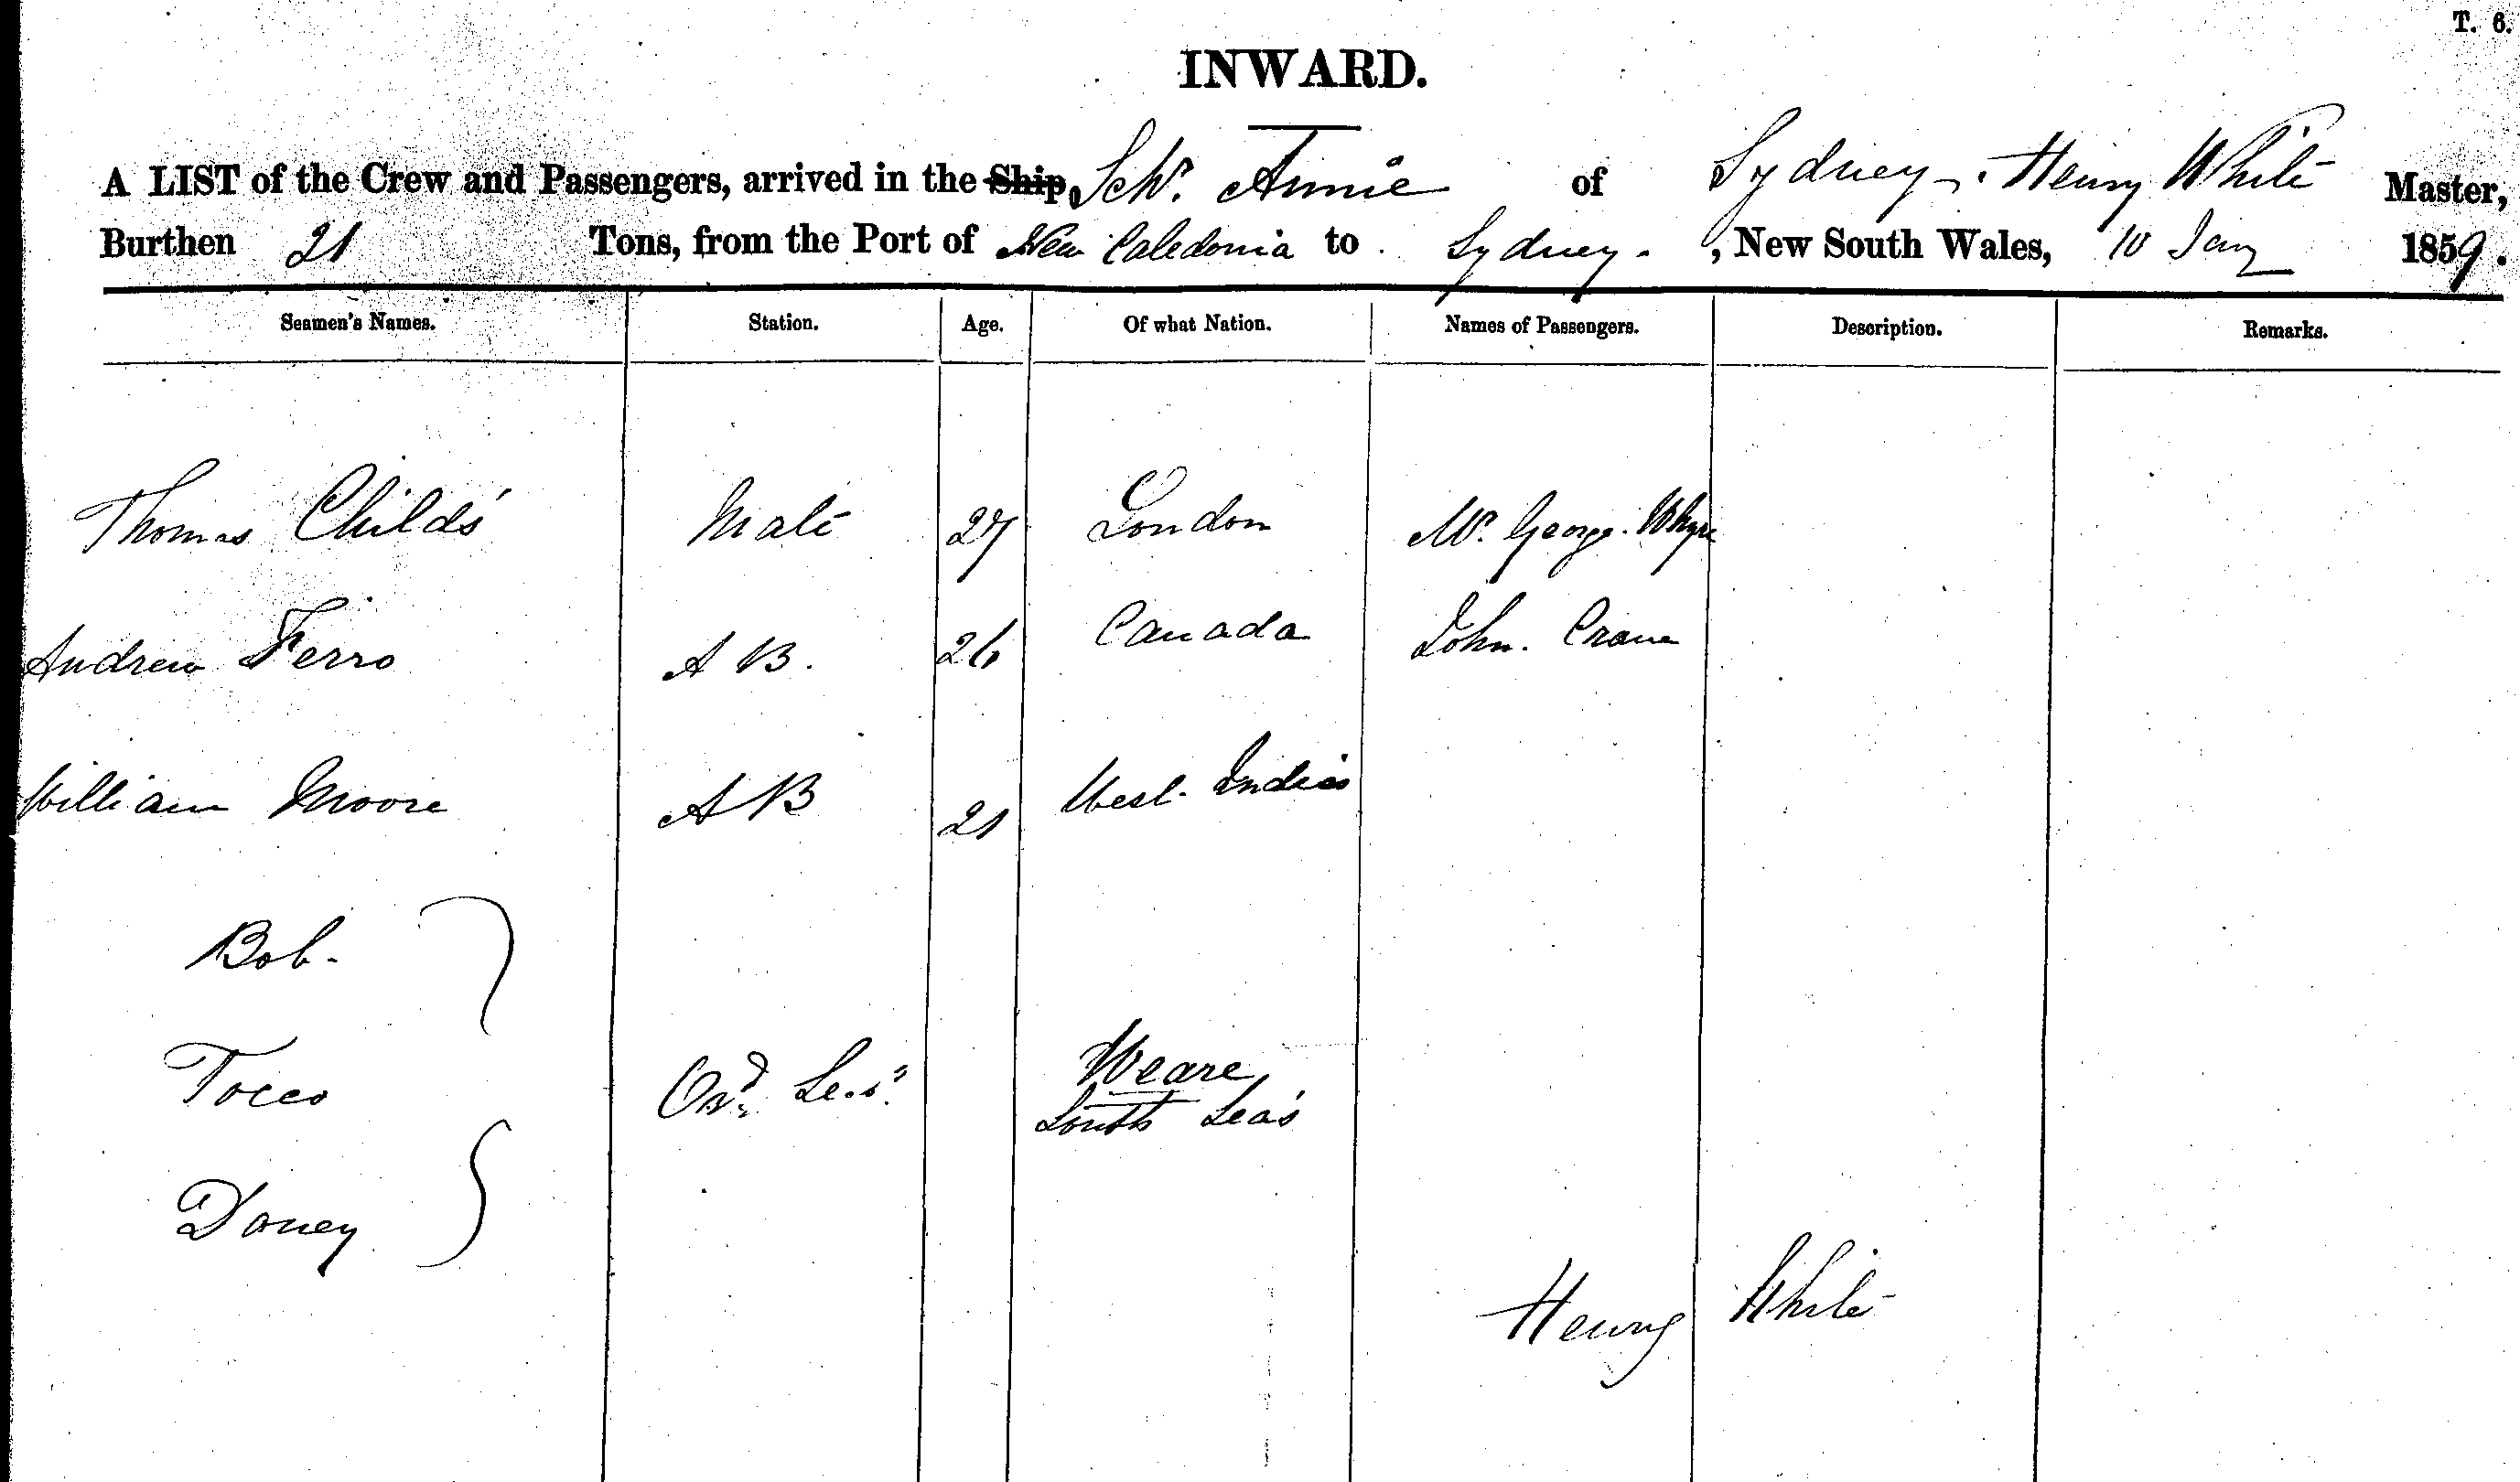 T. 6.
INWARD.
A LIST of the Crew and Passengers, arrived in the Ship, Schr. Annie of Sydney. Henry White Master,
Burthen 21 Tons, from the Port of New Caledonia to Sydney. , New South Wales, 10 Jany 1859.
Seamen's Names. Station. Age. Of what Nation. Names of Passengers. Description. Remarks.
Thomas Childs Mate 27 London Mr. George. Whyre
Andrew Ferro A B. 26 Canada John. Crane
William Moore A B 21 West. Indies
Bob.
Tocco Ord Sea Weare
South Seas
Doney
Henry White